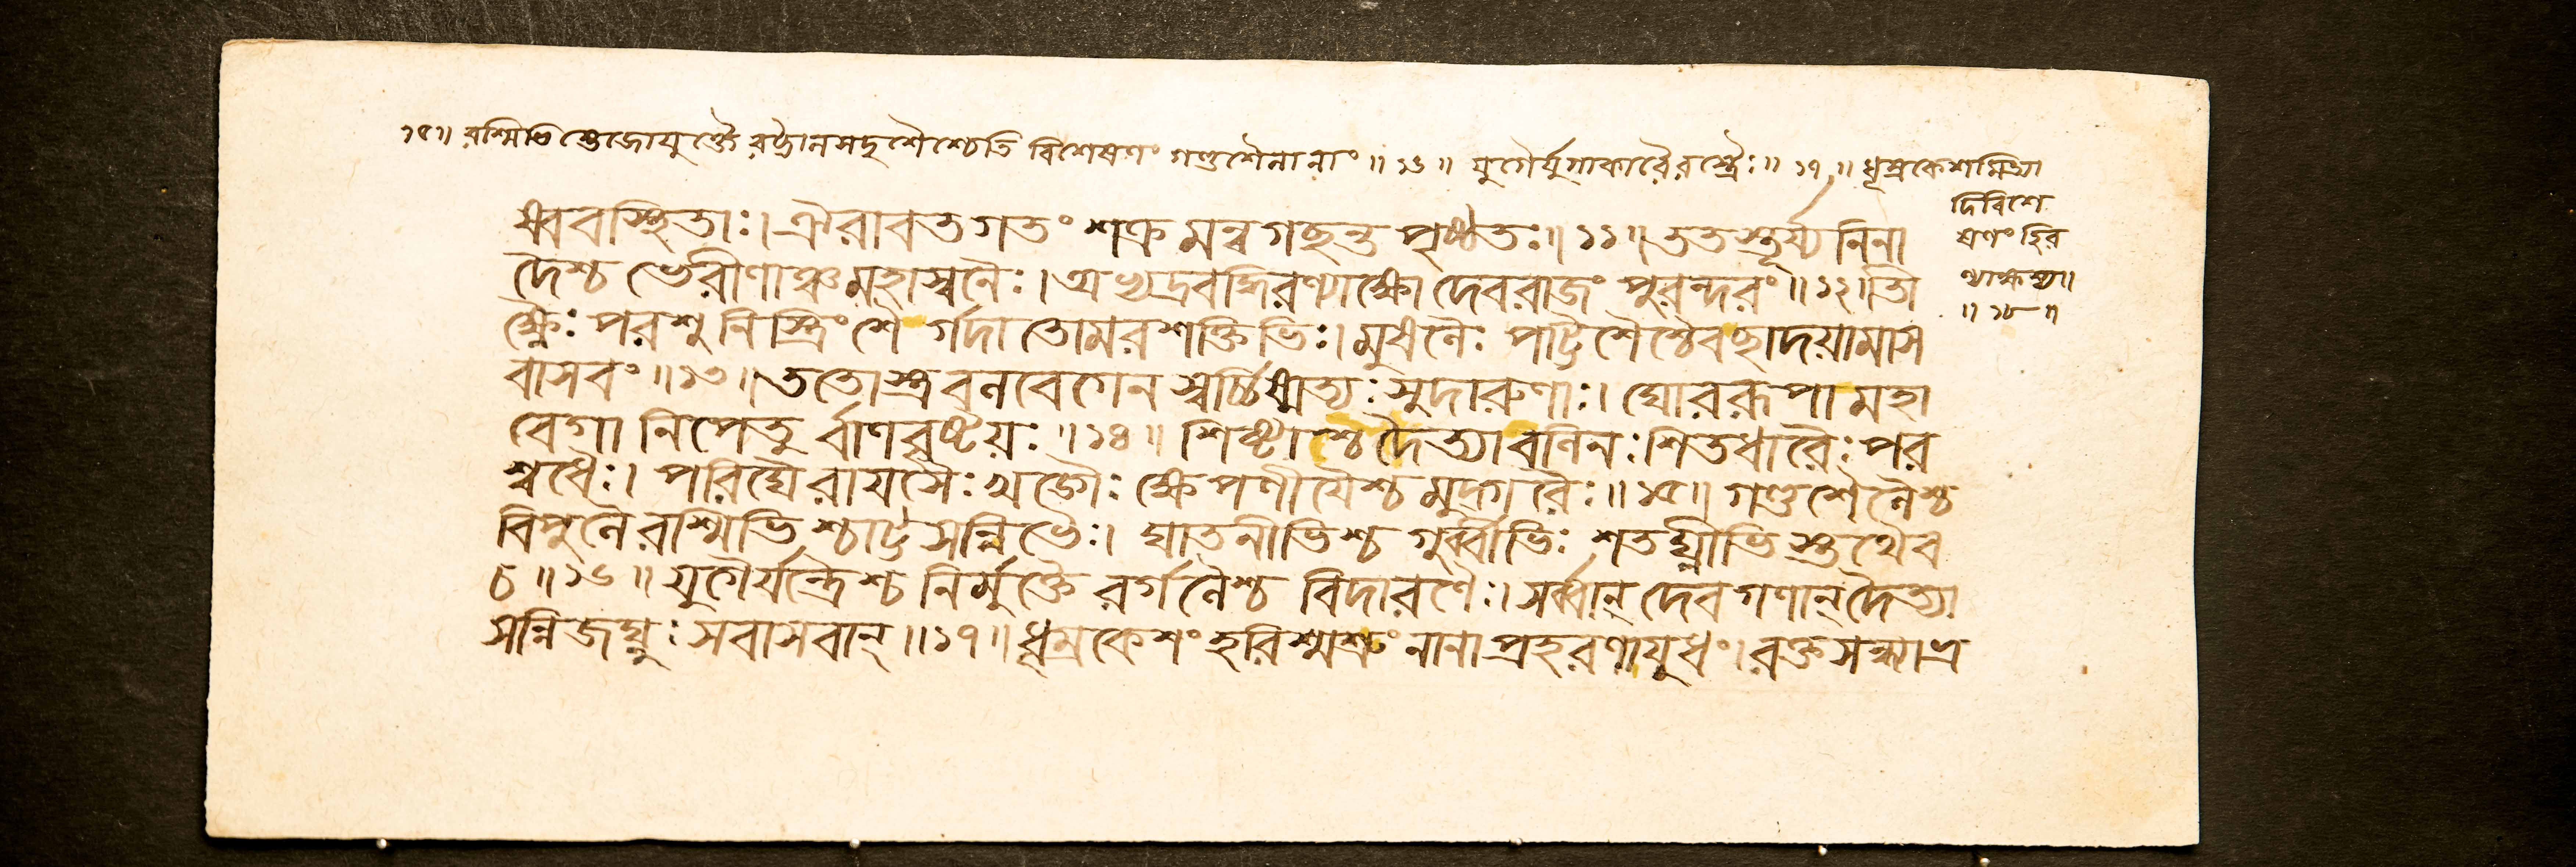 ১৫॥ রশ্মিভিস্তেজোযুক্তৈ রট্টানসদৃশৈশ্চেতি বিশেষণং গণ্ডশৈলানাং ॥ ১৬ ॥ যুগৈর্যুগাকারৈরস্ত্রৈঃ ॥ ১৭ ॥ ধূম্রকেশমিত্যা
দিবিশে
ষণং হির
ণ্যাক্ষস্য॥
॥ ১৮ ॥
ব্যবস্থিতাঃ। ঐরাবতগতং শক্রমন্বগছন্ত পৃষ্ঠতঃ॥ ১১॥ ততস্তূর্য্যনিনা
দৈশ্চ ভেরীণাঞ্চ মহাস্বনৈঃ। অভ্যদ্রবদ্ধিরণ্যাক্ষো দেবরাজং পুরন্দরং ॥১২।তী
ক্ষ্ণৈঃ পরশুনিস্ত্রিংশৈ র্গদাতোমরশক্তিভিঃ। মুষলৈঃ পট্টিশৈশ্চৈবছাদয়ামাস
বাসবং ॥১৩॥ ততোস্ত্রবলবেগেন সার্চ্চিষ্মত্যঃ সুদারুণাঃ। ঘোররূপা মহা
বেগা নিপেতু র্বাণবৃষ্টয়ঃ ॥১৪॥ শিষ্টাশ্চ দৈত্যা বলিনঃ শিতধারৈঃ পর
শ্বধৈঃ। পরিঘৈরায়সৈঃ খড্গৈঃ ক্ষেপণীয়ৈশ্চ মুদ্গরৈঃ ॥১৫॥ গণ্ডশৈলৈশ্চ
বিপুলৈরশ্মিভিশ্চাট্টসন্নিভৈঃ। ঘাতনীভিশ্চ গুর্ব্বীভিঃ শতঘ্নীভিস্তথৈব
চ ॥১৬॥ যুগৈর্যন্ত্রৈশ্চ নির্মুক্তৈ রর্গলৈশ্চ বিদারণৈঃ। সর্ব্বান্ দেবগণান্ দৈত্যা
সন্নিজঘ্নুঃ সবাসবান্ ॥১৭॥ ধূম্রকেশং হরিশ্মশ্রুং নানাপ্রহরণায়ুধং। রক্তসন্ধ্যাভ্র